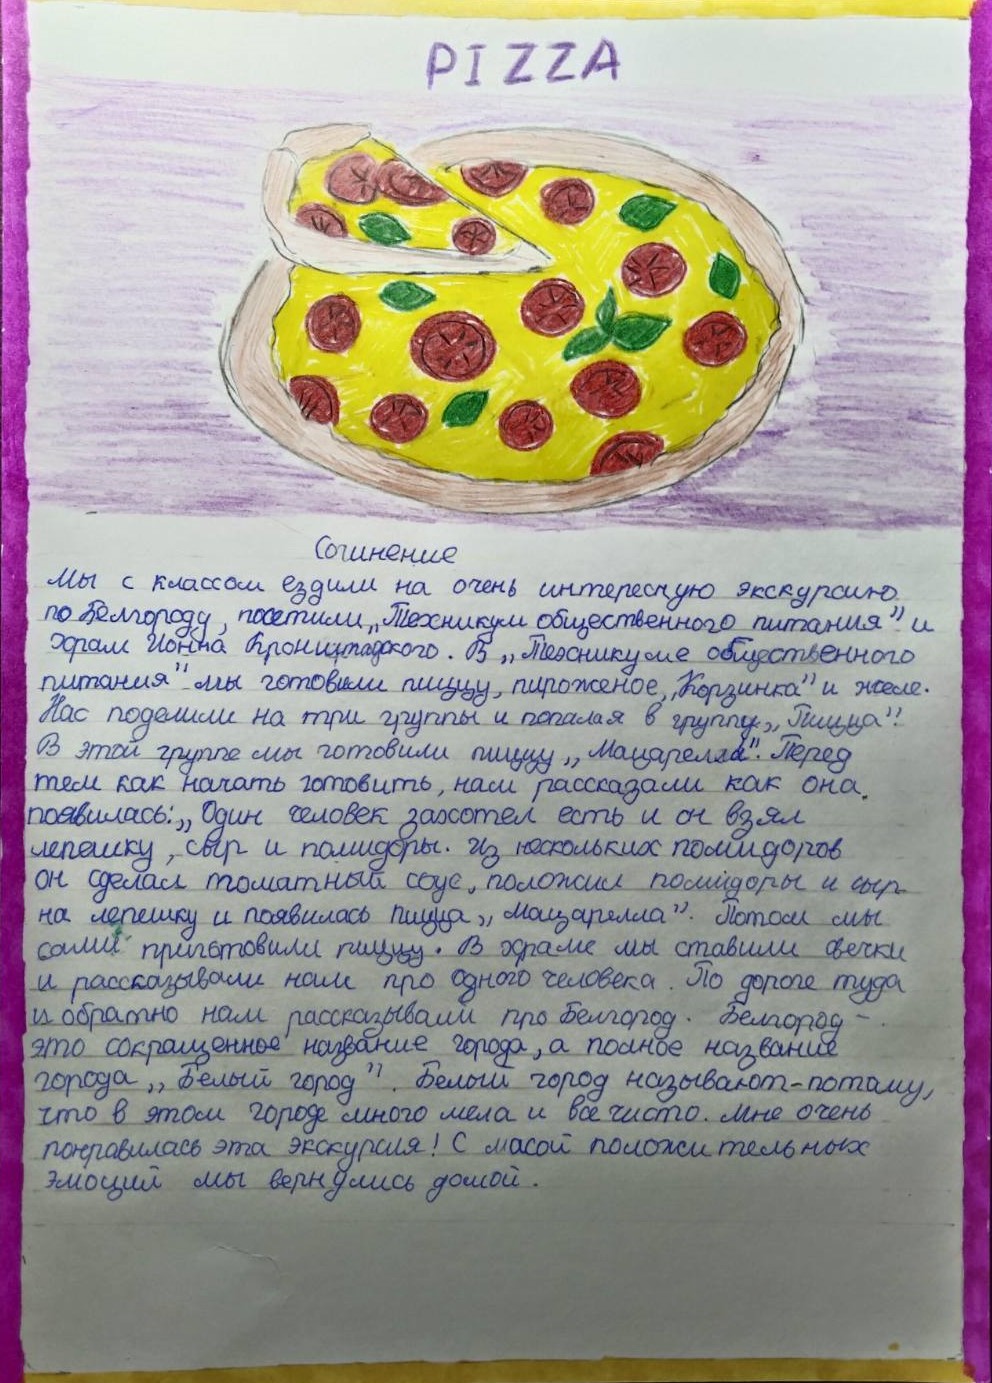 PIZZA
Сочинение
Мы с классом ездили на очень интересную экскурсию
по Белгороду, посетили „Техникум общественного питания" и
храм Ионна Кронштадского. В „Техникуме общественного
питания" мы готовили пиццу, пироженое „Корзинка" и желе.
Нас поделили на три группы и попалая в группу „Пицца".
В этой группе мы готовили пиццу „Мацарелла". Перед
тем как начать готовить, нам рассказали как она
появилась: „Один человек захотел есть и он взял
лепешку, сыр и помидоры. Из нескольких помидоров
он сделал томатный соус, положил помидоры и сыр
на лепешку и появилась пицца „Мацарелла". Потом мы
сами приготовили пиццу. В храме мы ставили свечки
и рассказывали нам про одного человека. По дороге туда
и обратно нам рассказывали про Белгород. Белгород -
это сокращенное название города, а полное название
города „Белый город". Белый город называют-потому,
что в этом городе много мела и все чисто. Мне очень
понравилась эта экскурсия! С масой положительных
эмоций мы вернулись домой.